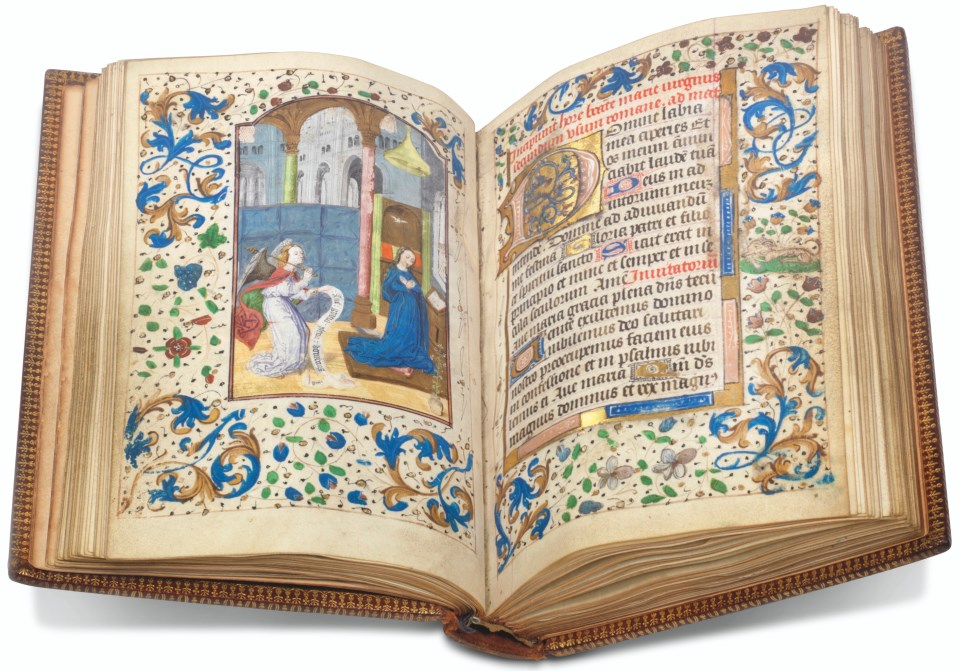 Incipiunt hore beate marie virginis
secundum usum romane. ad mat
Domine labia
mea aperies Et
os meum ānūn
ciabit laudē tuā
Deus in ad
iutorium meuz
intende Domine ad adiuvandū
me festina Gloria patri et filio
et spiritui sancto Sicut erat in
principio et nunc et semper et in se
cula seculorum Amē Invitatoriu
Ave maria gracia plena dn̄s tecū
Venite exultemus domino
iubilemus deo salutari
nostro preoccupemus faciem eius
in confessione et in psalmis iubi
lemus ei Ave maria Qm̄ ds̄
magnus dominus et rex magn9